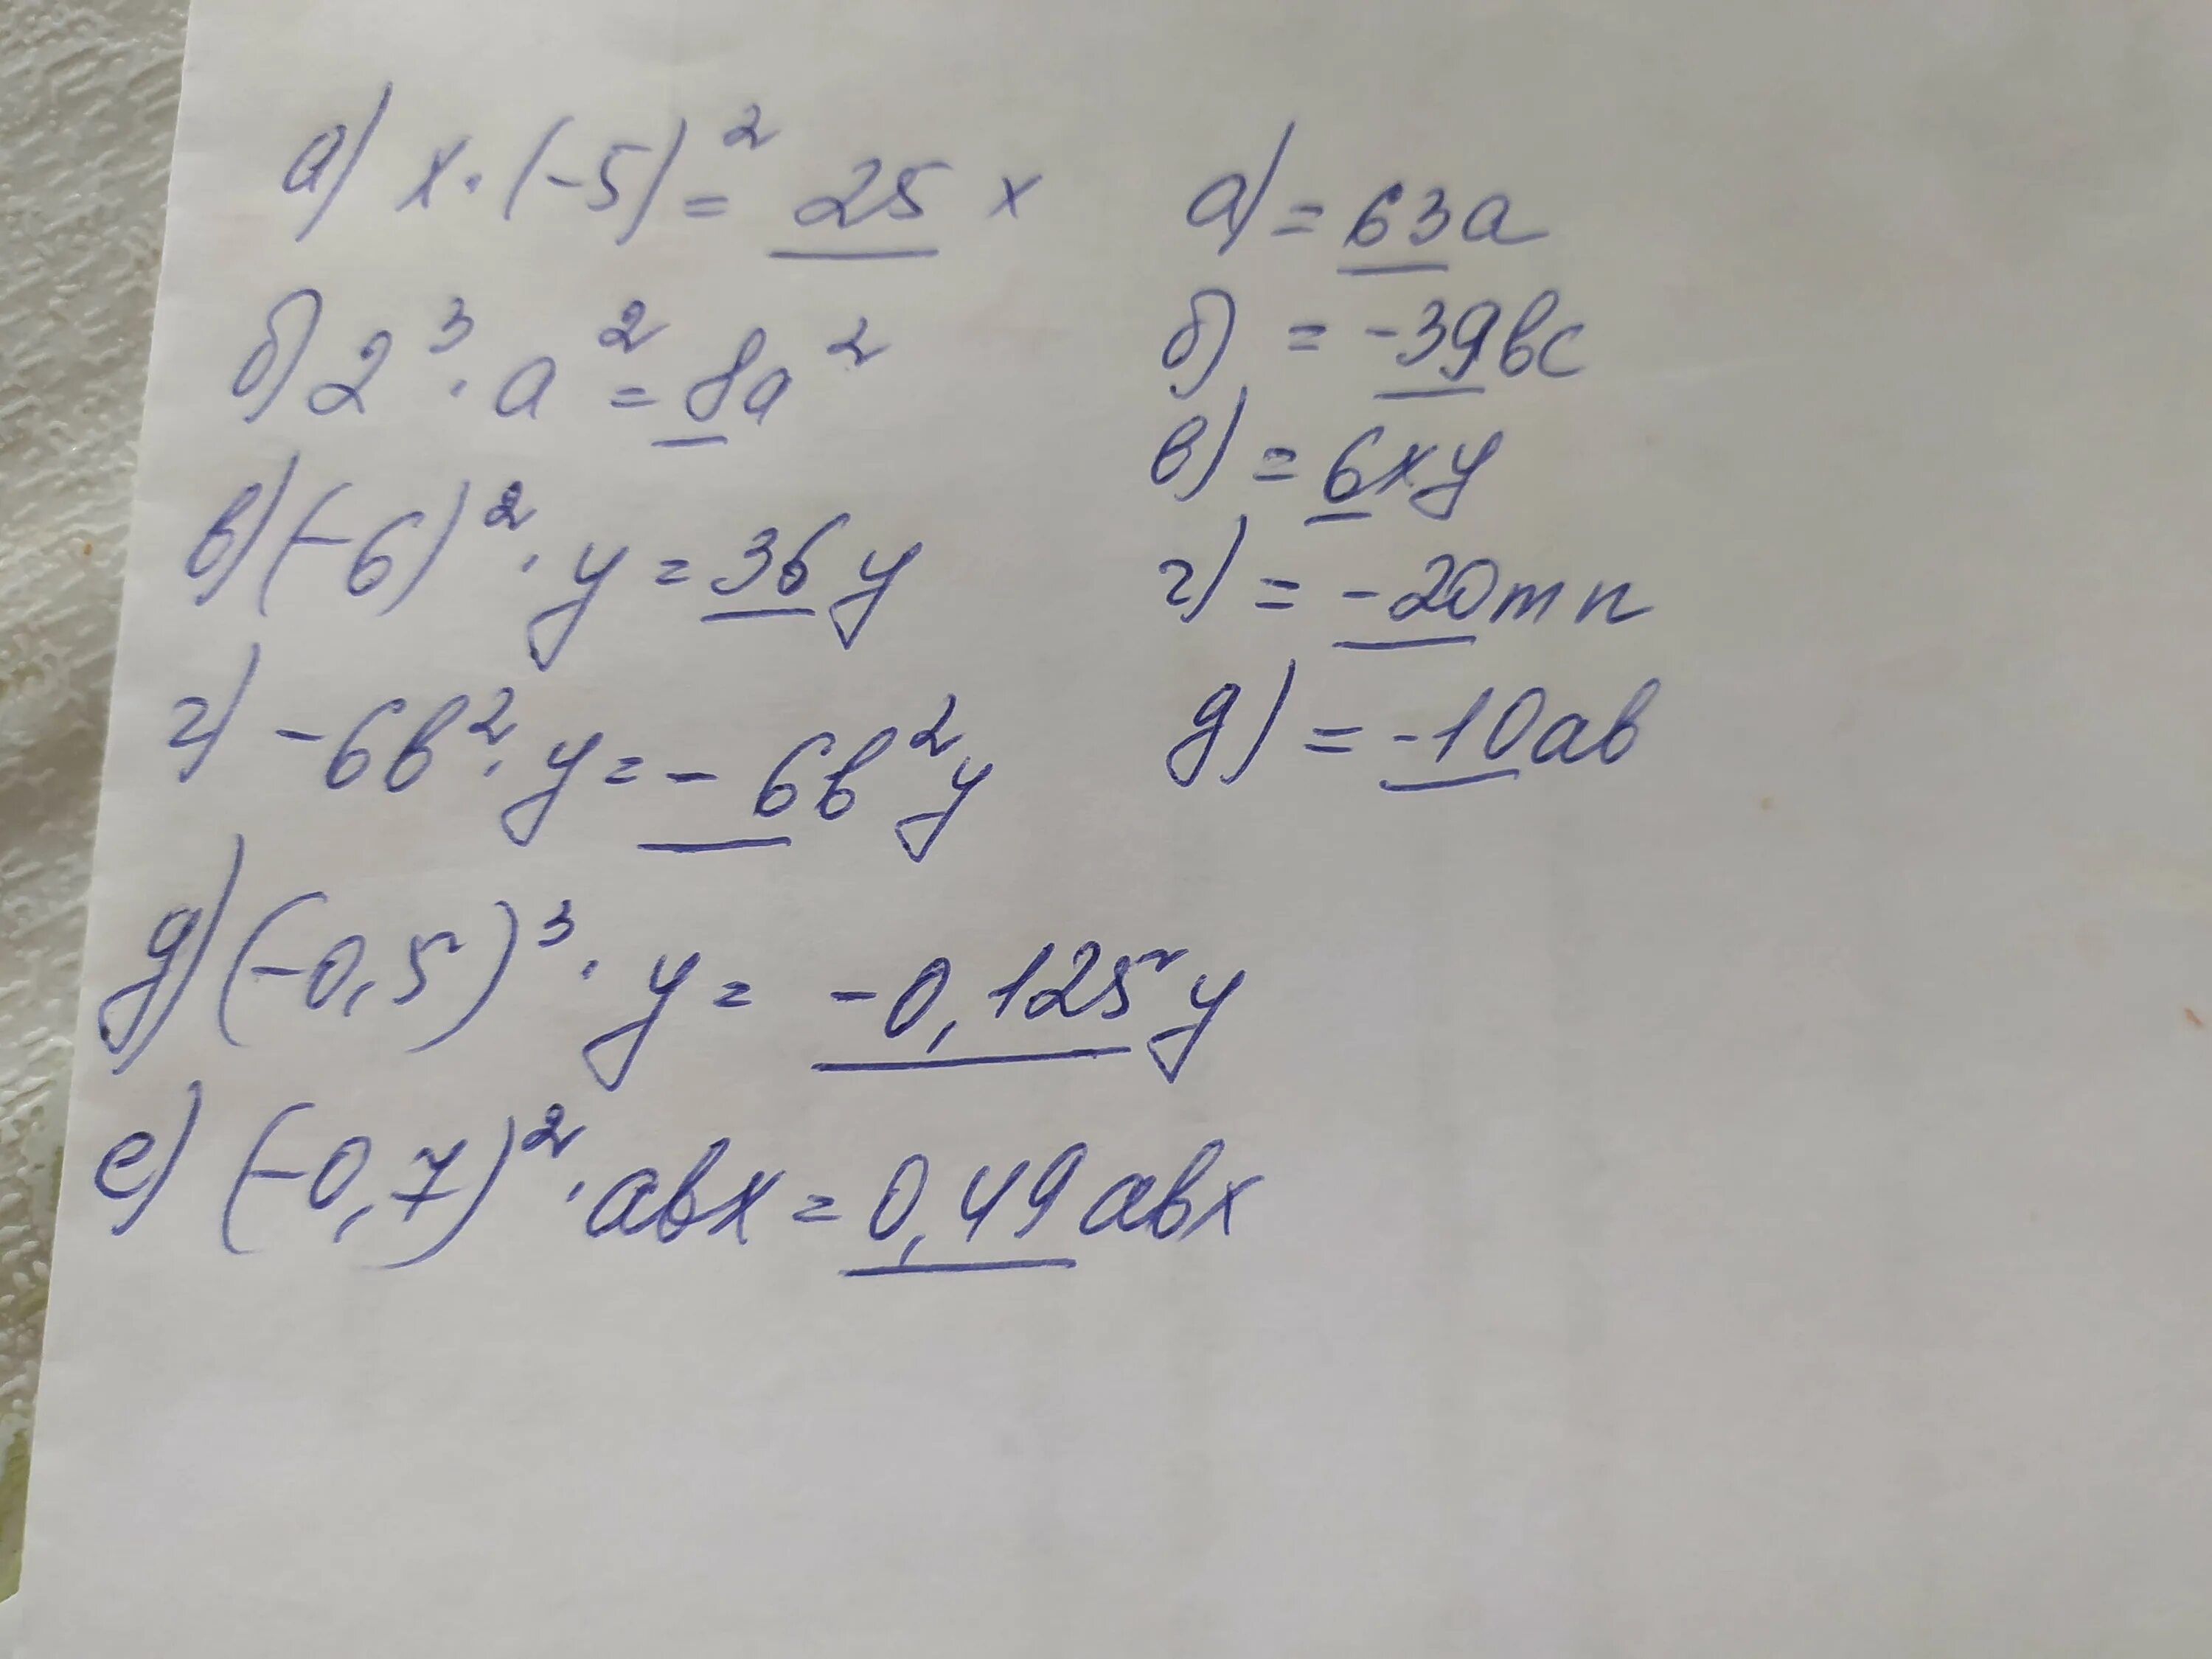 а) x · (-5)² = 25 x
б) 2³ · a² = 8a²
в) (-6)² · y = 36 y
г) -6b² · y = - 6b²y
д) (-0,5)³ · y = -0,125 y
е) (-0,7)² · abx = 0,49 abx
а) = 63a
б) = -39bc
в) = 6xy
г) = -20mn
д) = -10ab